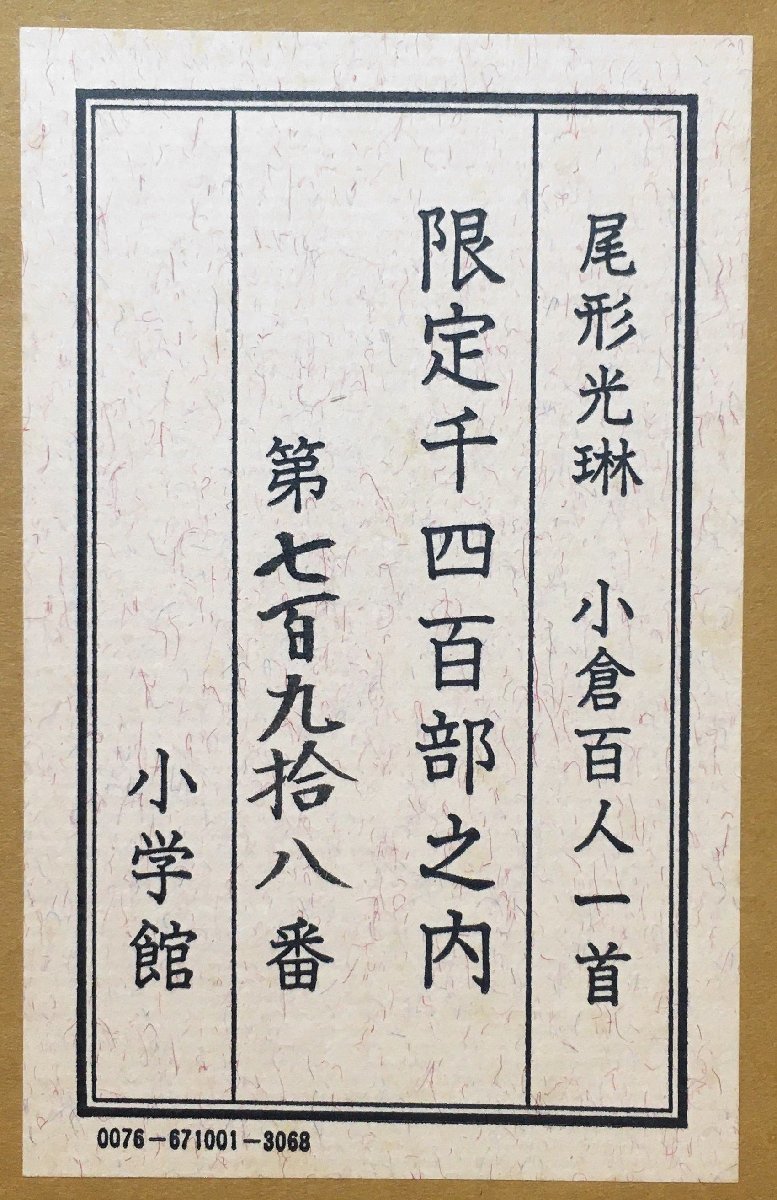 尾形光琳　小倉百人一首
限定千四百部之内
第七百九拾八番
小学館
0076-671001-3068